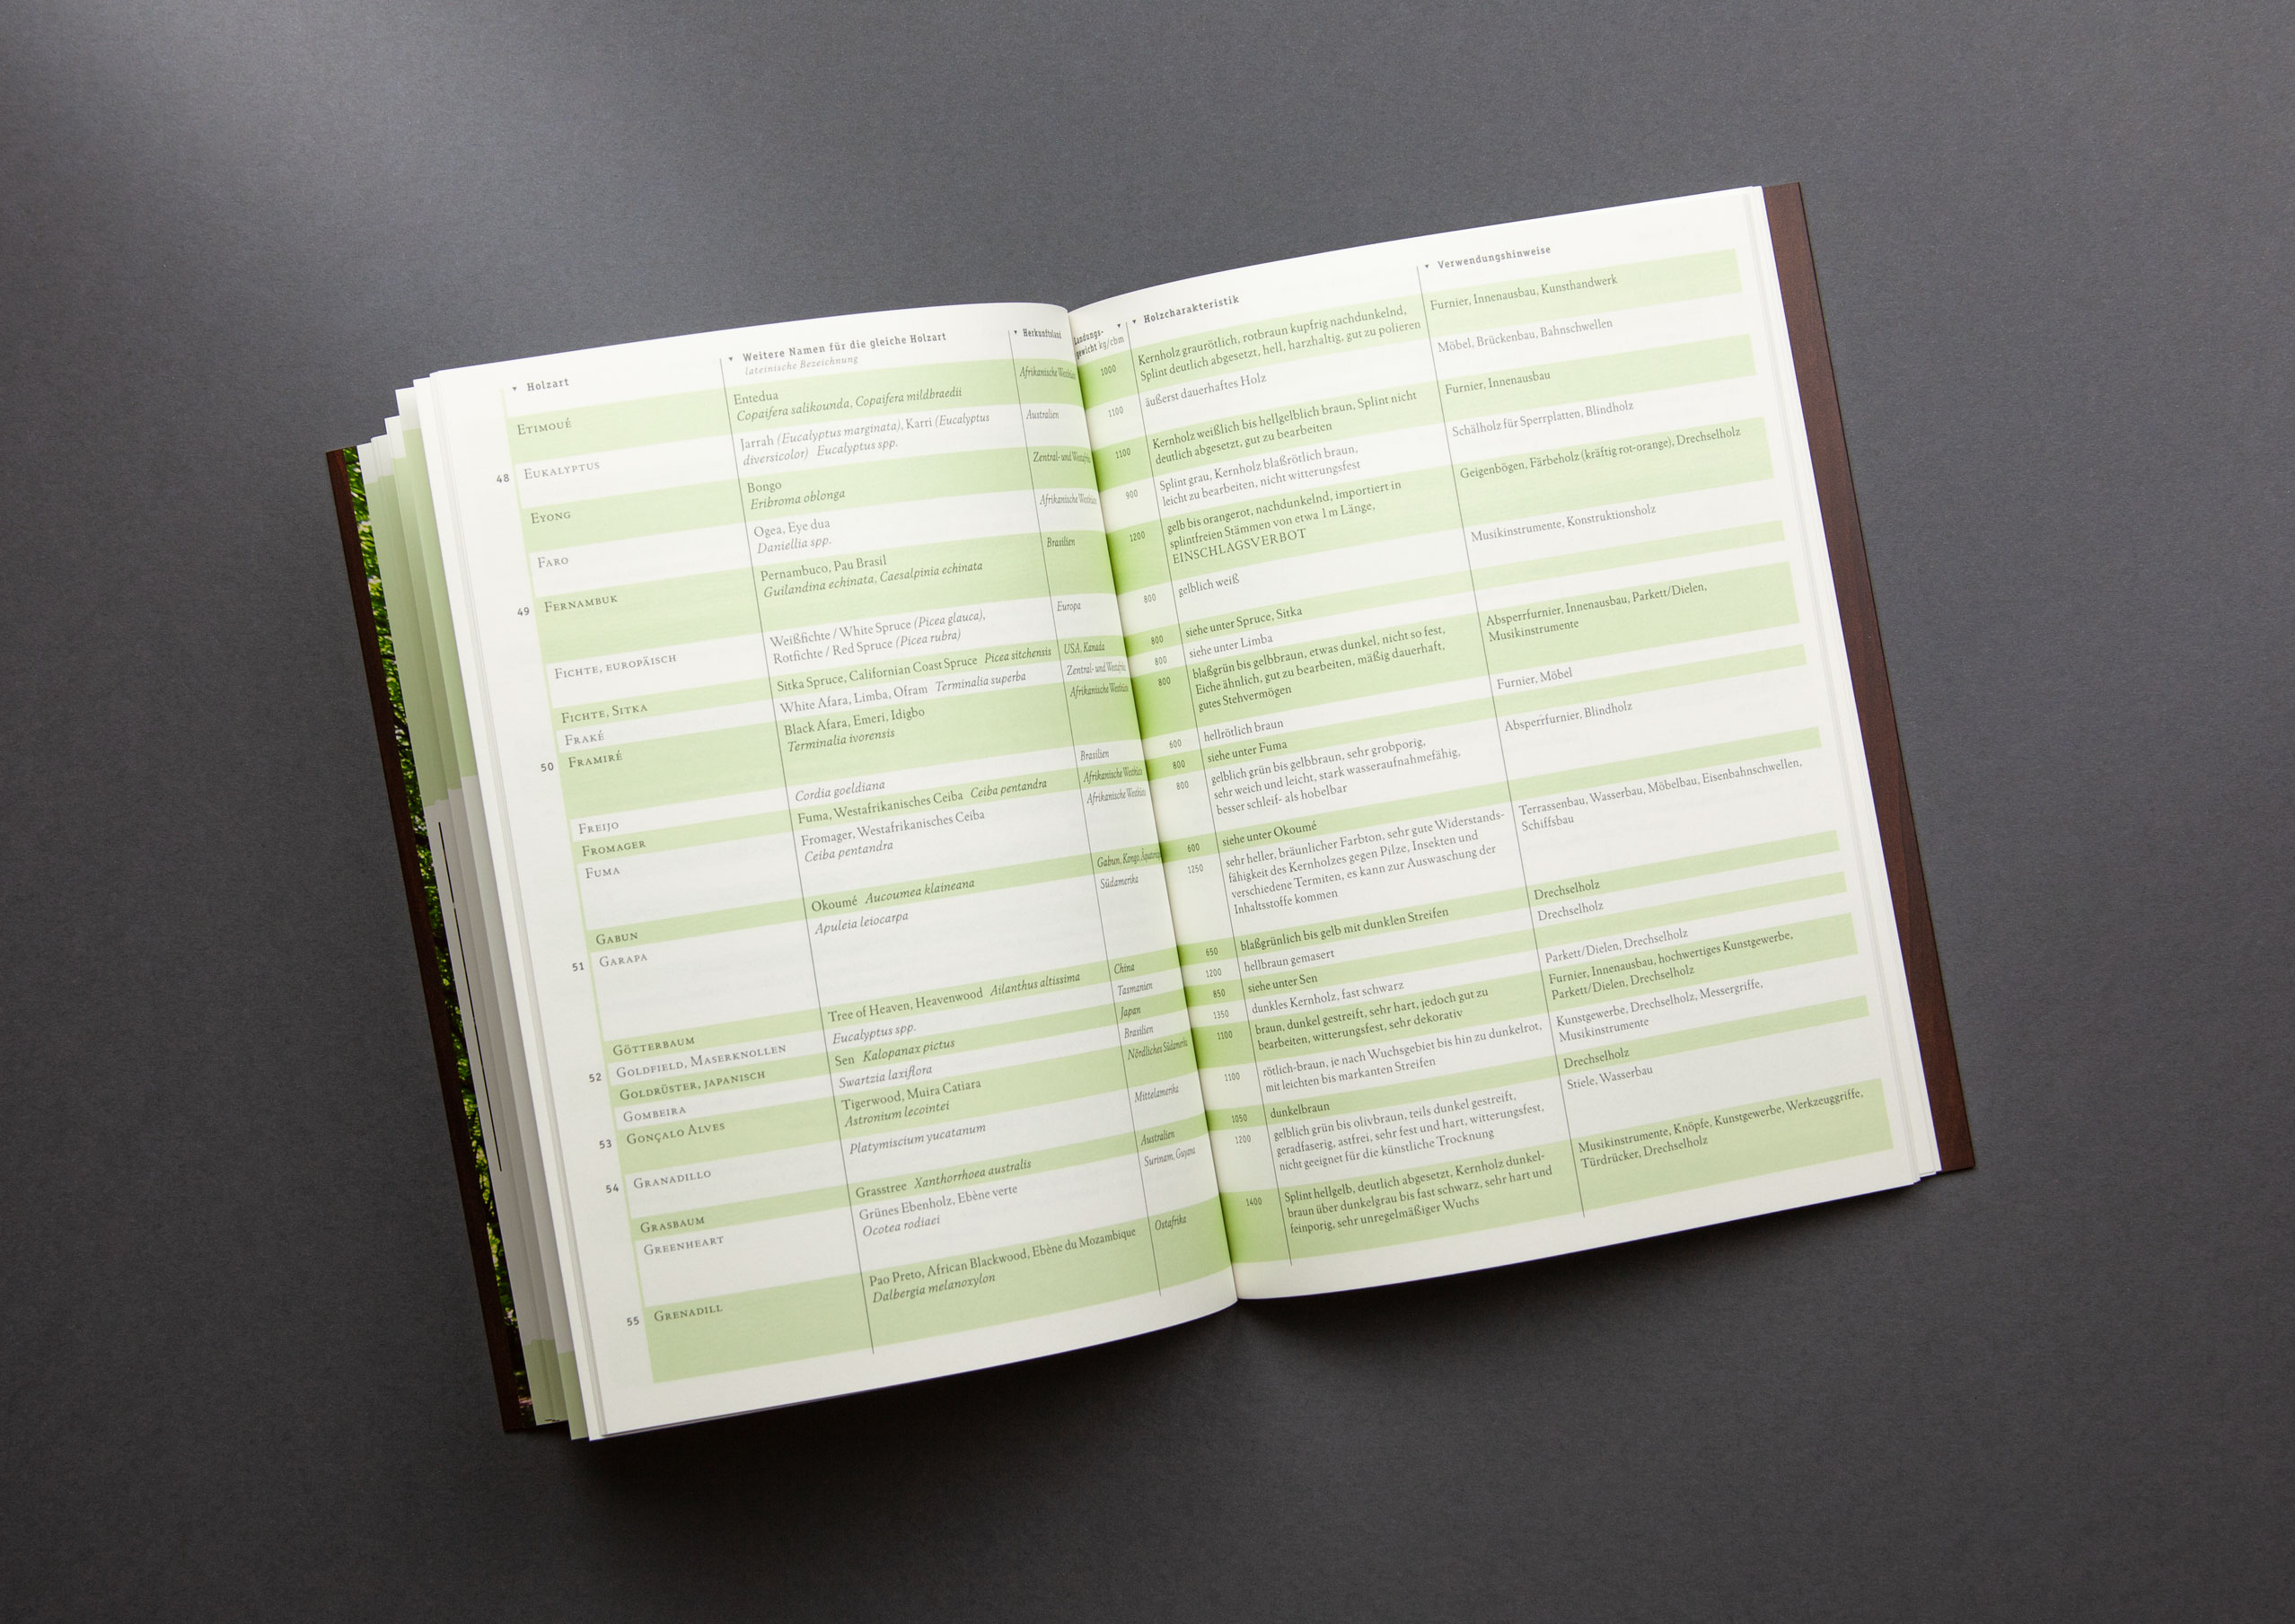 Holzart
Weitere Namen für die gleiche Holzart
lateinische Bezeichnung
Herkunftsland
Etimoué
Entedua
Copaifera salikounda, Copaifera mildbraedii
Afrikanische
48
Eukalyptus
Jarrah (Eucalyptus marginata), Karri (Eucalyptus
diversicolor) Eucalyptus spp.
Australien
Eyong
Bongo
Eribroma oblonga
Zentral- und
Faro
Ogea, Eye dua
Daniellia spp.
Afrikanische
49
Fernambuk
Pernambuco, Pau Brasil
Guilandina echinata, Caesalpinia echinata
Brasilien
Fichte, europäisch
Weißfichte / White Spruce (Picea glauca),
Rotfichte / Red Spruce (Picea rubra)
Europa
Fichte, Sitka
Sitka Spruce, Californian Coast Spruce Picea sitchensis
USA, Kanada
Fraké
White Afara, Limba, Ofram Terminalia superba
Zentral- und
50
Framiré
Black Afara, Emeri, Idigbo
Terminalia ivorensis
Afrikanische
Freijo
Cordia goeldiana
Brasilien
Fromager
Fuma, Westafrikanisches Ceiba Ceiba pentandra
Afrikanische
Fuma
Fromager, Westafrikanisches Ceiba
Ceiba pentandra
Afrikanische
Gabun
Okoumé Aucoumea klaineana
Gabun, Kongo,
51
Garapa
Apuleia leiocarpa
Südamerika
Götterbaum
Tree of Heaven, Heavenwood Ailanthus altissima
China
52
Goldfield, Maserknollen
Eucalyptus spp.
Tasmanien
Goldrüster, japanisch
Sen Kalopanax pictus
Japan
Gombeira
Swartzia laxiflora
Brasilien
53
Gonçalo Alves
Tigerwood, Muira Catiara
Astronium lecointei
Nördliches
54
Granadillo
Platymiscium yucatanum
Mittelamerika
Grasbaum
Grasstree Xanthorrhoea australis
Australien
Greenheart
Grünes Ebenholz, Ebène verte
Ocotea rodiaei
Surinam, Guyana
55
Grenadill
Pao Preto, African Blackwood, Ebène du Mozambique
Dalbergia melanoxylon
Ostafrika
kg/cbm
Holzcharakteristik
Verwendungshinweise
1000
Kernholz graurötlich, rotbraun kupfrig nachdunkelnd,
Splint deutlich abgesetzt, hell, harzhaltig, gut zu polieren
Furnier, Innenausbau, Kunsthandwerk
1100
äußerst dauerhaftes Holz
Möbel, Brückenbau, Bahnschwellen
1100
Kernholz weißlich bis hellgelblich braun, Splint nicht
deutlich abgesetzt, gut zu bearbeiten
Furnier, Innenausbau
900
Splint grau, Kernholz blaßrötlich braun,
leicht zu bearbeiten, nicht witterungsfest
Schälholz für Sperrplatten, Blindholz
1200
gelb bis orangerot, nachdunkelnd, importiert in
splintfreien Stämmen von etwa 1 m Länge,
EINSCHLAGSVERBOT
Geigenbögen, Färbeholz (kräftig rot-orange), Drechselholz
800
gelblich weiß
Musikinstrumente, Konstruktionsholz
800
siehe unter Spruce, Sitka
800
siehe unter Limba
800
blaßgrün bis gelbbraun, etwas dunkel, nicht so fest,
Eiche ähnlich, gut zu bearbeiten, mäßig dauerhaft,
gutes Stehvermögen
Absperrfurnier, Innenausbau, Parkett/Dielen,
Musikinstrumente
600
hellrötlich braun
Furnier, Möbel
800
siehe unter Fuma
800
gelblich grün bis gelbbraun, sehr grobporig,
sehr weich und leicht, stark wasseraufnahmefähig,
besser schleif- als hobelbar
Absperrfurnier, Blindholz
600
siehe unter Okoumé
1250
sehr heller, bräunlicher Farbton, sehr gute Widerstands-
fähigkeit des Kernholzes gegen Pilze, Insekten und
verschiedene Termiten, es kann zur Auswaschung der
Inhaltsstoffe kommen
Terrassenbau, Wasserbau, Möbelbau, Eisenbahnschwellen,
Schiffsbau
650
blaßgrünlich bis gelb mit dunklen Streifen
Drechselholz
1200
hellbraun gemasert
Drechselholz
850
siehe unter Sen
1350
dunkles Kernholz, fast schwarz
Parkett/Dielen, Drechselholz
1100
braun, dunkel gestreift, sehr hart, jedoch gut zu
bearbeiten, witterungsfest, sehr dekorativ
Furnier, Innenausbau, hochwertiges Kunstgewerbe,
Parkett/Dielen, Drechselholz
1100
rötlich-braun, je nach Wuchsgebiet bis hin zu dunkelrot,
mit leichten bis markanten Streifen
Kunstgewerbe, Drechselholz, Messergriffe,
Musikinstrumente
1050
dunkelbraun
Drechselholz
1200
gelblich grün bis olivbraun, teils dunkel gestreift,
geradfaserig, astfrei, sehr fest und hart, witterungsfest,
nicht geeignet für die künstliche Trocknung
Stiele, Wasserbau
1400
Splint hellgelb, deutlich abgesetzt, Kernholz dunkel-
braun über dunkelgrau bis fast schwarz, sehr hart und
feinporig, sehr unregelmäßiger Wuchs
Musikinstrumente, Knöpfe, Kunstgewerbe, Werkzeuggriffe,
Türdrücker, Drechselholz